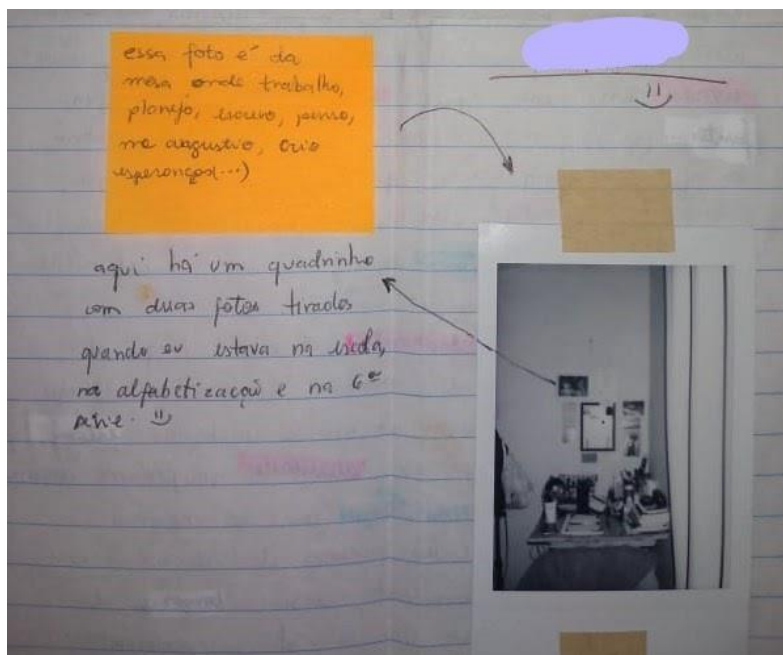 essa foto é da
mesa onde trabalho,
planejo, escrevo, penso,
me angustio, crio
esperanças(...)
aqui há um quadrinho
com duas fotos tiradas
quando eu estava na escola,
na alfabetização e na 6ª
série.